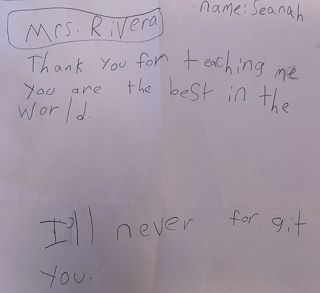 name: Seanah
Mrs. Rivera
Thank you for teaching me
you are the best in the
World.
I'll never for git
you.